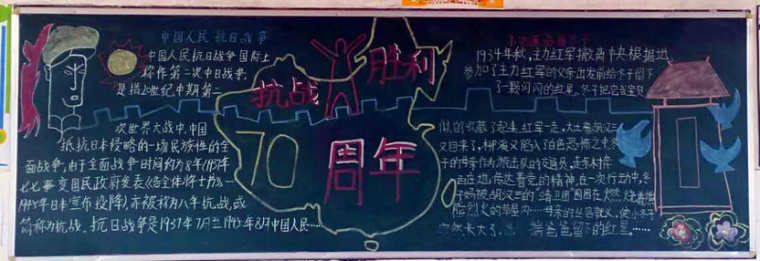 中国人民抗日战争
中国人民抗日战争国际上
称作第二次中日战争,
是指20世纪中期第二
次世界大战中,中国
抵抗日本侵略的一场民族性的全
面战争,由于全面战争时间约为8年(1937年
七七事变国民政府发表《告全体将士书》—
1945年日本宣布投降)亦被称为八年抗战,或
简称为抗战。抗日战争是1937年7月至1945年8月中国人民……
抗战
胜利
70
周年
1934年秋,主力红军撤离中央根据地,
参加了主力红军的父亲出发前给冬子留下
了一颗闪闪的红星。冬子把它当宝贝
似的收藏了起来,红军一走,
又回来了,柳溪又陷入白色恐怖之中,冬
子的母亲作为游击队的交通员,
传达着党的精神,在一次行动中,冬
子妈被胡汉三的
父亲留下的红星……